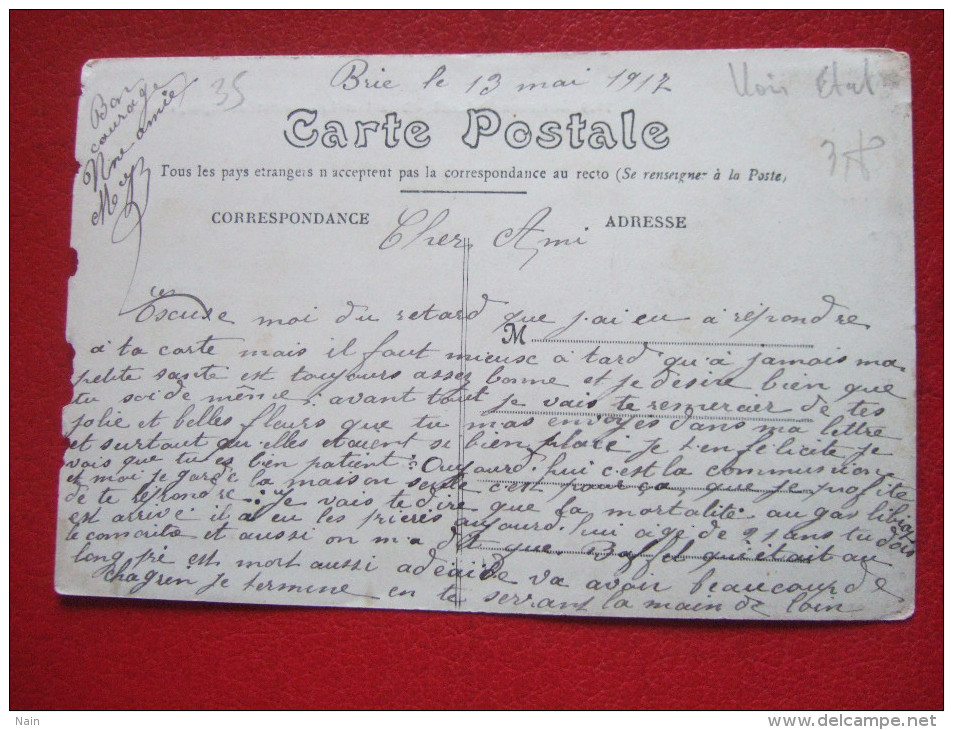 Bon
courage
Une amie
35
Brie le 13 mai 1912
Voir Etat
Carte Postale
Tous les pays etrangers n acceptent pas la correspondance au recto (Se renseigner à la Poste)
CORRESPONDANCE
ADRESSE
Cher Ami
M
Escuse moi du retard que j'ai eu a répondre
à ta carte mais il faut mieusc a tard qu'à jamais ma
petite santé est toujours assez bonne et je désire bien que
tu soi de même : avant tout je vais te remercier de tes
jolie et belles fleurs que tu m'as envoyés dans ma lettre
et surtout qu'elles etaient si bien placé je t'en félicite je
vois que tu es bien patient : Oujourd'hui c'est la communion
et moi je garde la maison seule c'est pour ça que je profite
de te répondre : je vais te dire que la mortalité au gas
est arrivé il a eu les prières aujourd'hui agé de 21 ans tu dois
le connaitre et aussi on m'a dit que qui était au
long pré est mort aussi adelaide va avoir beaucoup de
chagren je termine en te serrant la main de loin
Nain
www.delcampe.net